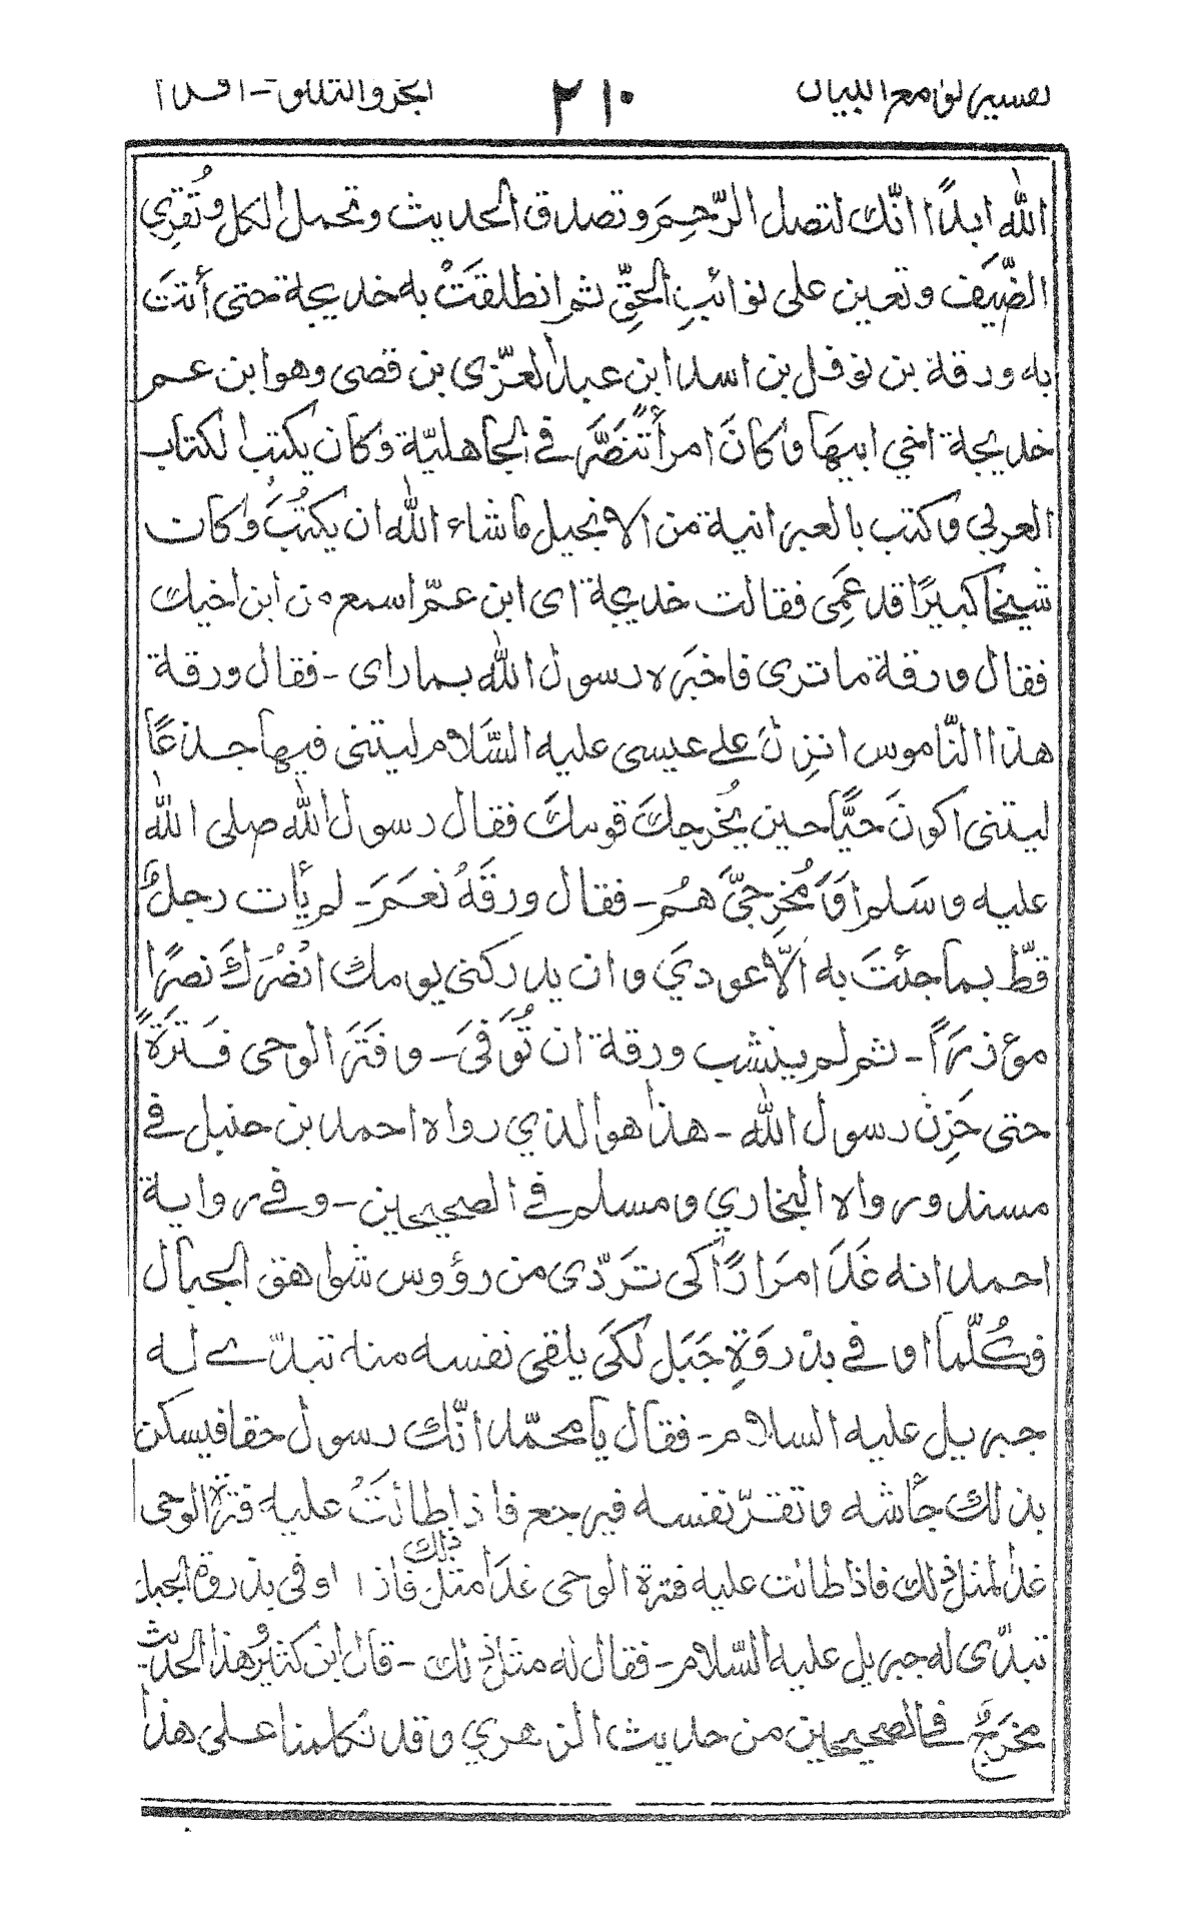 تفسير لوامع البيان ٢١٠ الجزء الثلاثون - اقرأ
الله ابدًا انّك لتصل الرّحِمَ وتصدق الحديث وتحمل الكل وتُقرِي
الضّيَف وتعين على نوائبِ الحقِّ ثم انطلقَتْ به خديجة حتى أتتَ
به ورقة بن نوفل بن اسد ابن عبد العزّى بن قصى وهو ابن عم
خديجة اخي ابيهَا وكانَ امرأً تنَصَّرَ في الجاهليّة وكان يكتب الكتاب
العربي وكتب بالعبرانية من الانجيل ماشاء الله ان يكتُبُ وكان
شيخًا كبيرًا قد عَمِى فقالت خديجة اى ابن عمّ اسمع من ابن اخيك
فقال ورقة ما ترى فاخبَره رسول الله بما راى - فقال ورقة
هذا النّاموس انزِلَ على عيسى عليه السَّلام ليتنى فيها جذعًا
ليتنى اكونَ حيًّا حين يُخرجكَ قومكَ فقال رسول الله صلى الله
عليه وسَلم اوَمُخرِجيَّ هُم - فقال ورقَهُ نعَمَ - لم يأت رجلٌ
قطّ بما جئتَ به الّا عودىَ وان يدركنى يومك انصُرَكَ نصرًا
مؤزرًا - ثم لم ينشب ورقة ان تُوَفىَ - وفتَرَ الوحى فَترَةً
حتى حَزِنَ رسول الله - هذا هو الذي رواه احمد بن حنبل في
مسند ورواه البخاري ومسلم في الصحيحين - وفي رواية
احمد انه غَدَا مرَارًا كى تَرَدّى من رؤوس شواهق الجبال
فكُلّما اوفي بذروَةِ جَبَل لكَى يلقى نفسه منه تبدّے له
جبريل عليه السلام - فقال يا محمّد انّك رسول حقا فيسكن
بذلك جأشه وتقرّ نفسه فيرجع فاذا طالتَ عليه فترة الوحى
غدا لمثل ذلك فاذا طالت عليه فترة الوحى غدَا مثل ذلك فاذا اوفى بذروة الجبل
تبدّى له جبريل عليه السّلام - فقال له مثل ذلك - قال ابن كثير وهذا الحديث
مخرَجٌ في الصحيحين من حديث الزهري وقد تكلمنا على هذا